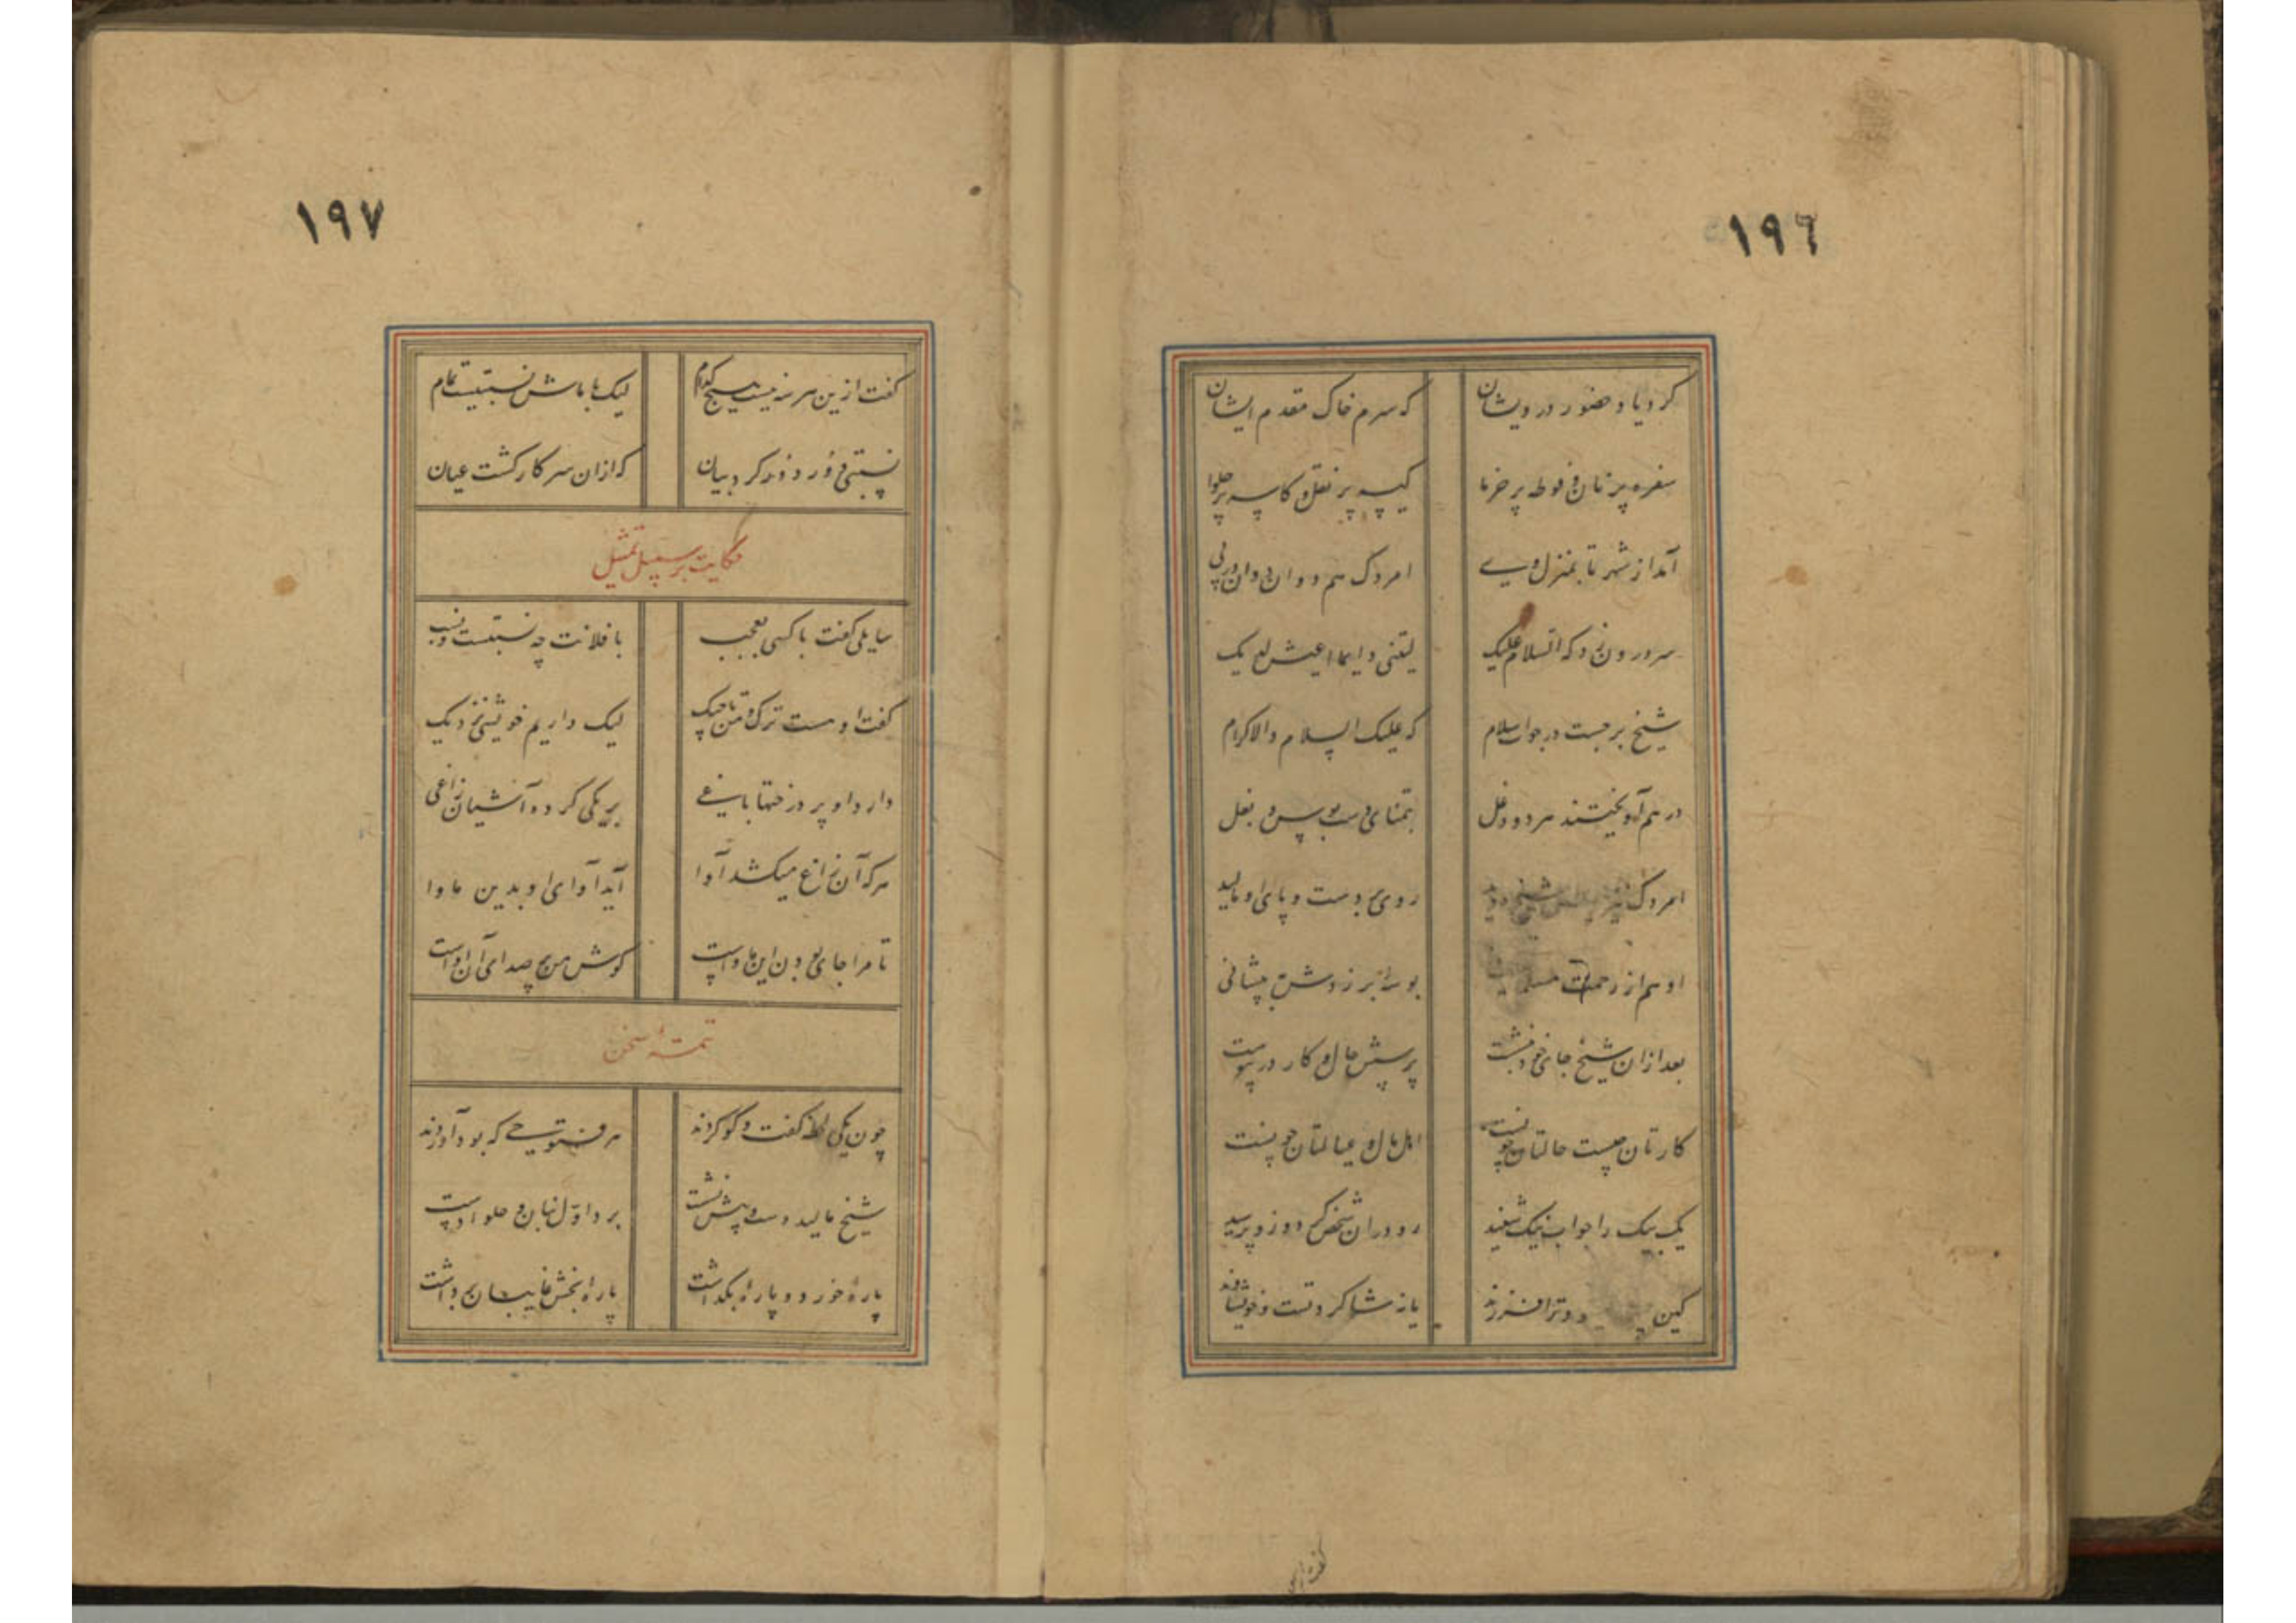 ١٩٦
کرد یاد حضور درویشان
که سرم خاک مقدم ایشان
سفره پر نان و فوطه پر خرما
کیسه پر نقل و کاسه پر حلوا
آمد از شهر تا بمنزل وی
امردک هم دوان دوان در پی
سر درون زد که السلام علیک
شیخ برجست در جواب سلام
که علیک السلام والاکرام
در هم آویختند هر دو دغل
بتمنای دست بوس و بغل
امردک شیخ دید
روی بر دست و پای او مالید
او هم از رحمت
بوسه بر زدش به پیشانی
بعد ازان شیخ جای خود بنشست
پرسش حال و کار در پیوست
کارتان چیست حالتان چونست
اهل و عیالتان چونست
یک بیک را جواب نیک شنید
رو در آن شخص کرد و زو پرسید
کین ترا فرزند
یا نه شاکردتست و خویشاوند
١٩٧
کفت ازین هر سه نیست هیچ کدام
لیک با ماش نسبتیست تمام
نسبتی دور دور کرد بیان
که ازان سر کار کشت عیان
حکایت بر سبیل تمثیل
سایلی کفت با کسی بعجب
با فلانت چه نسبتست و نسب
کفت او هست ترک و من تاجیک
لیک داریم خویشی نزدیک
دارد او پر درختها باغی
بر یکی کرده آشیان زاغی
هرکه آن زاغ میکشد آوا
آید آوای او بدین ماوا
تا مرا جای بودن این ماواست
کوش من بر صدای آن آواست
تتمهٔ سخن
چون یکی لحظه کفت و کو کردند
هر فتوحی که بود آوردند
شیخ مالید دست و پیش نشست
برد اول بنان و حلوا دست
پارهٔ خورد و پارهٔ بکذاشت
پارهٔ بخش غایبان برداشت